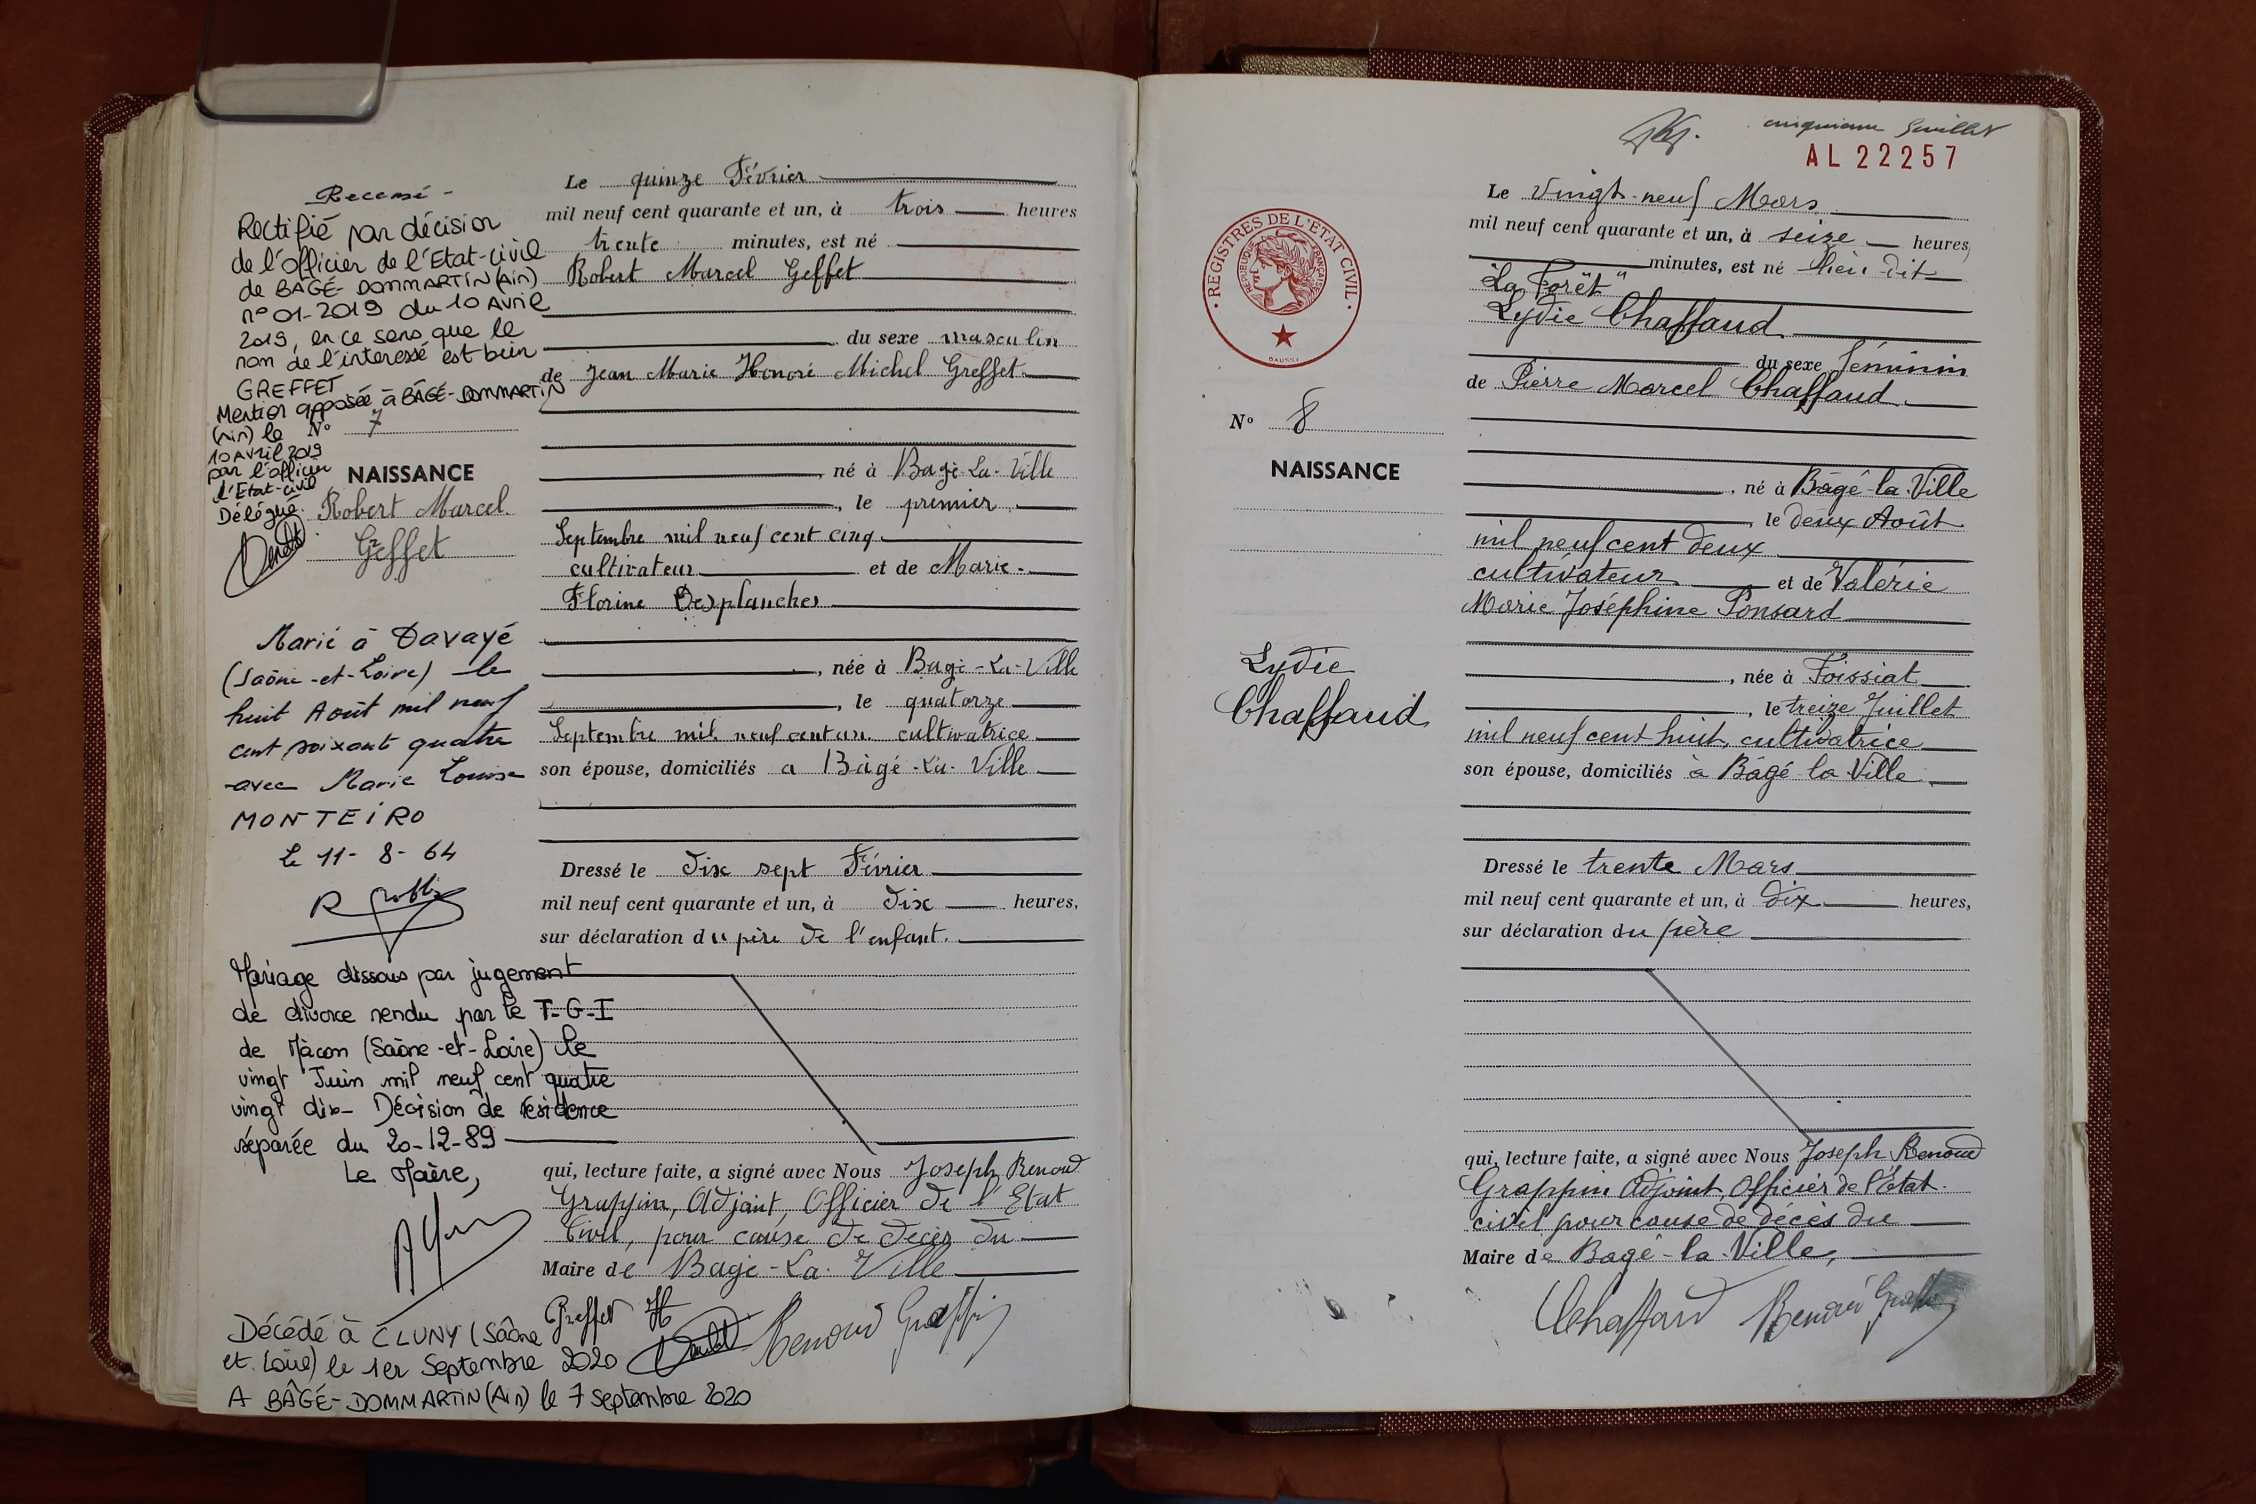 Recensé -
Rectifié par décision
de l'officier de l'Etat-civil
de BAGÉ-DOMMARTIN (Ain)
n° 01-2019 du 10 Avril
2019, en ce sens que le
nom de l'interessé est bien
GREFFET
Mention apposée à BÂGÉ-DOMMARTIN
(Ain) le
10 AVRIL 2019
par l'officier
d'Etat-civil
Délégué.
N° 7
NAISSANCE
Robert Marcel
Geffet
Marié à Davayé
(Saône-et-Loire) le
huit Août mil neuf
cent soixante quatre
avec Marie Louise
MONTEIRO
Le 11-8-64
Mariage dissous par jugement
de divorce rendu par le T-G-I
de Mâcon (Saône-et-Loire) le
vingt Juin mil neuf cent quatre
vingt dix- Décision de résidence
séparée du 20-12-89
Le Maire,
Décédé à CLUNY (Saône
et Loire) le 1er Septembre 2020
A BÂGÉ-DOMMARTIN (Ain) le 7 septembre 2020
Le quinze Février
mil neuf cent quarante et un, à trois heures
trente minutes, est né
Robert Marcel Geffet
du sexe masculin
de Jean Marie Honoré Michel Greffet
né à Bagé-La-Ville
, le premier
Septembre mil neuf cent cinq
cultivateur et de Marie-
Florine Desplanches
, née à Bagé-La-Ville
, le quatorze
Septembre mil neuf cent un cultivatrice
son épouse, domiciliés a Bâgé-La-Ville
Dressé le dix sept Février
mil neuf cent quarante et un, à dix heures,
sur déclaration du père de l'enfant.
qui, lecture faite, a signé avec Nous Joseph Renoud
Grappin, Adjoint, Officier de l'Etat
Civil, pour cause de décès du
Maire de Bagé-La-Ville
Greffet H
Renoud Grappin
cinquième feuillet
AL 22257
REGISTRES DE L'ÉTAT CIVIL
RÉPUBLIQUE FRANÇAISE
N° 8
NAISSANCE
Lydie
Chaffaud
Le Vingt-neuf Mars
mil neuf cent quarante et un, à seize heures,
minutes, est né lieu dit
"La Forêt"
Lydie Chaffaud
du sexe féminin
de Pierre Marcel Chaffaud
, né à Bâgé-la-Ville
, le deux Août
mil neuf cent deux
cultivateur et de Valérie
Marie Joséphine Ponsard
, née à Foissiat
, le treize Juillet
mil neuf cent huit, cultivatrice
son épouse, domiciliés à Bâgé-la-Ville
Dressé le trente Mars
mil neuf cent quarante et un, à dix heures,
sur déclaration du père
qui, lecture faite, a signé avec Nous Joseph Renoud
Grappin Adjoint, Officier de l'état
civil pour cause de décès du
Maire de Bagé-la-Ville,
Chaffaud Renoud Grappin